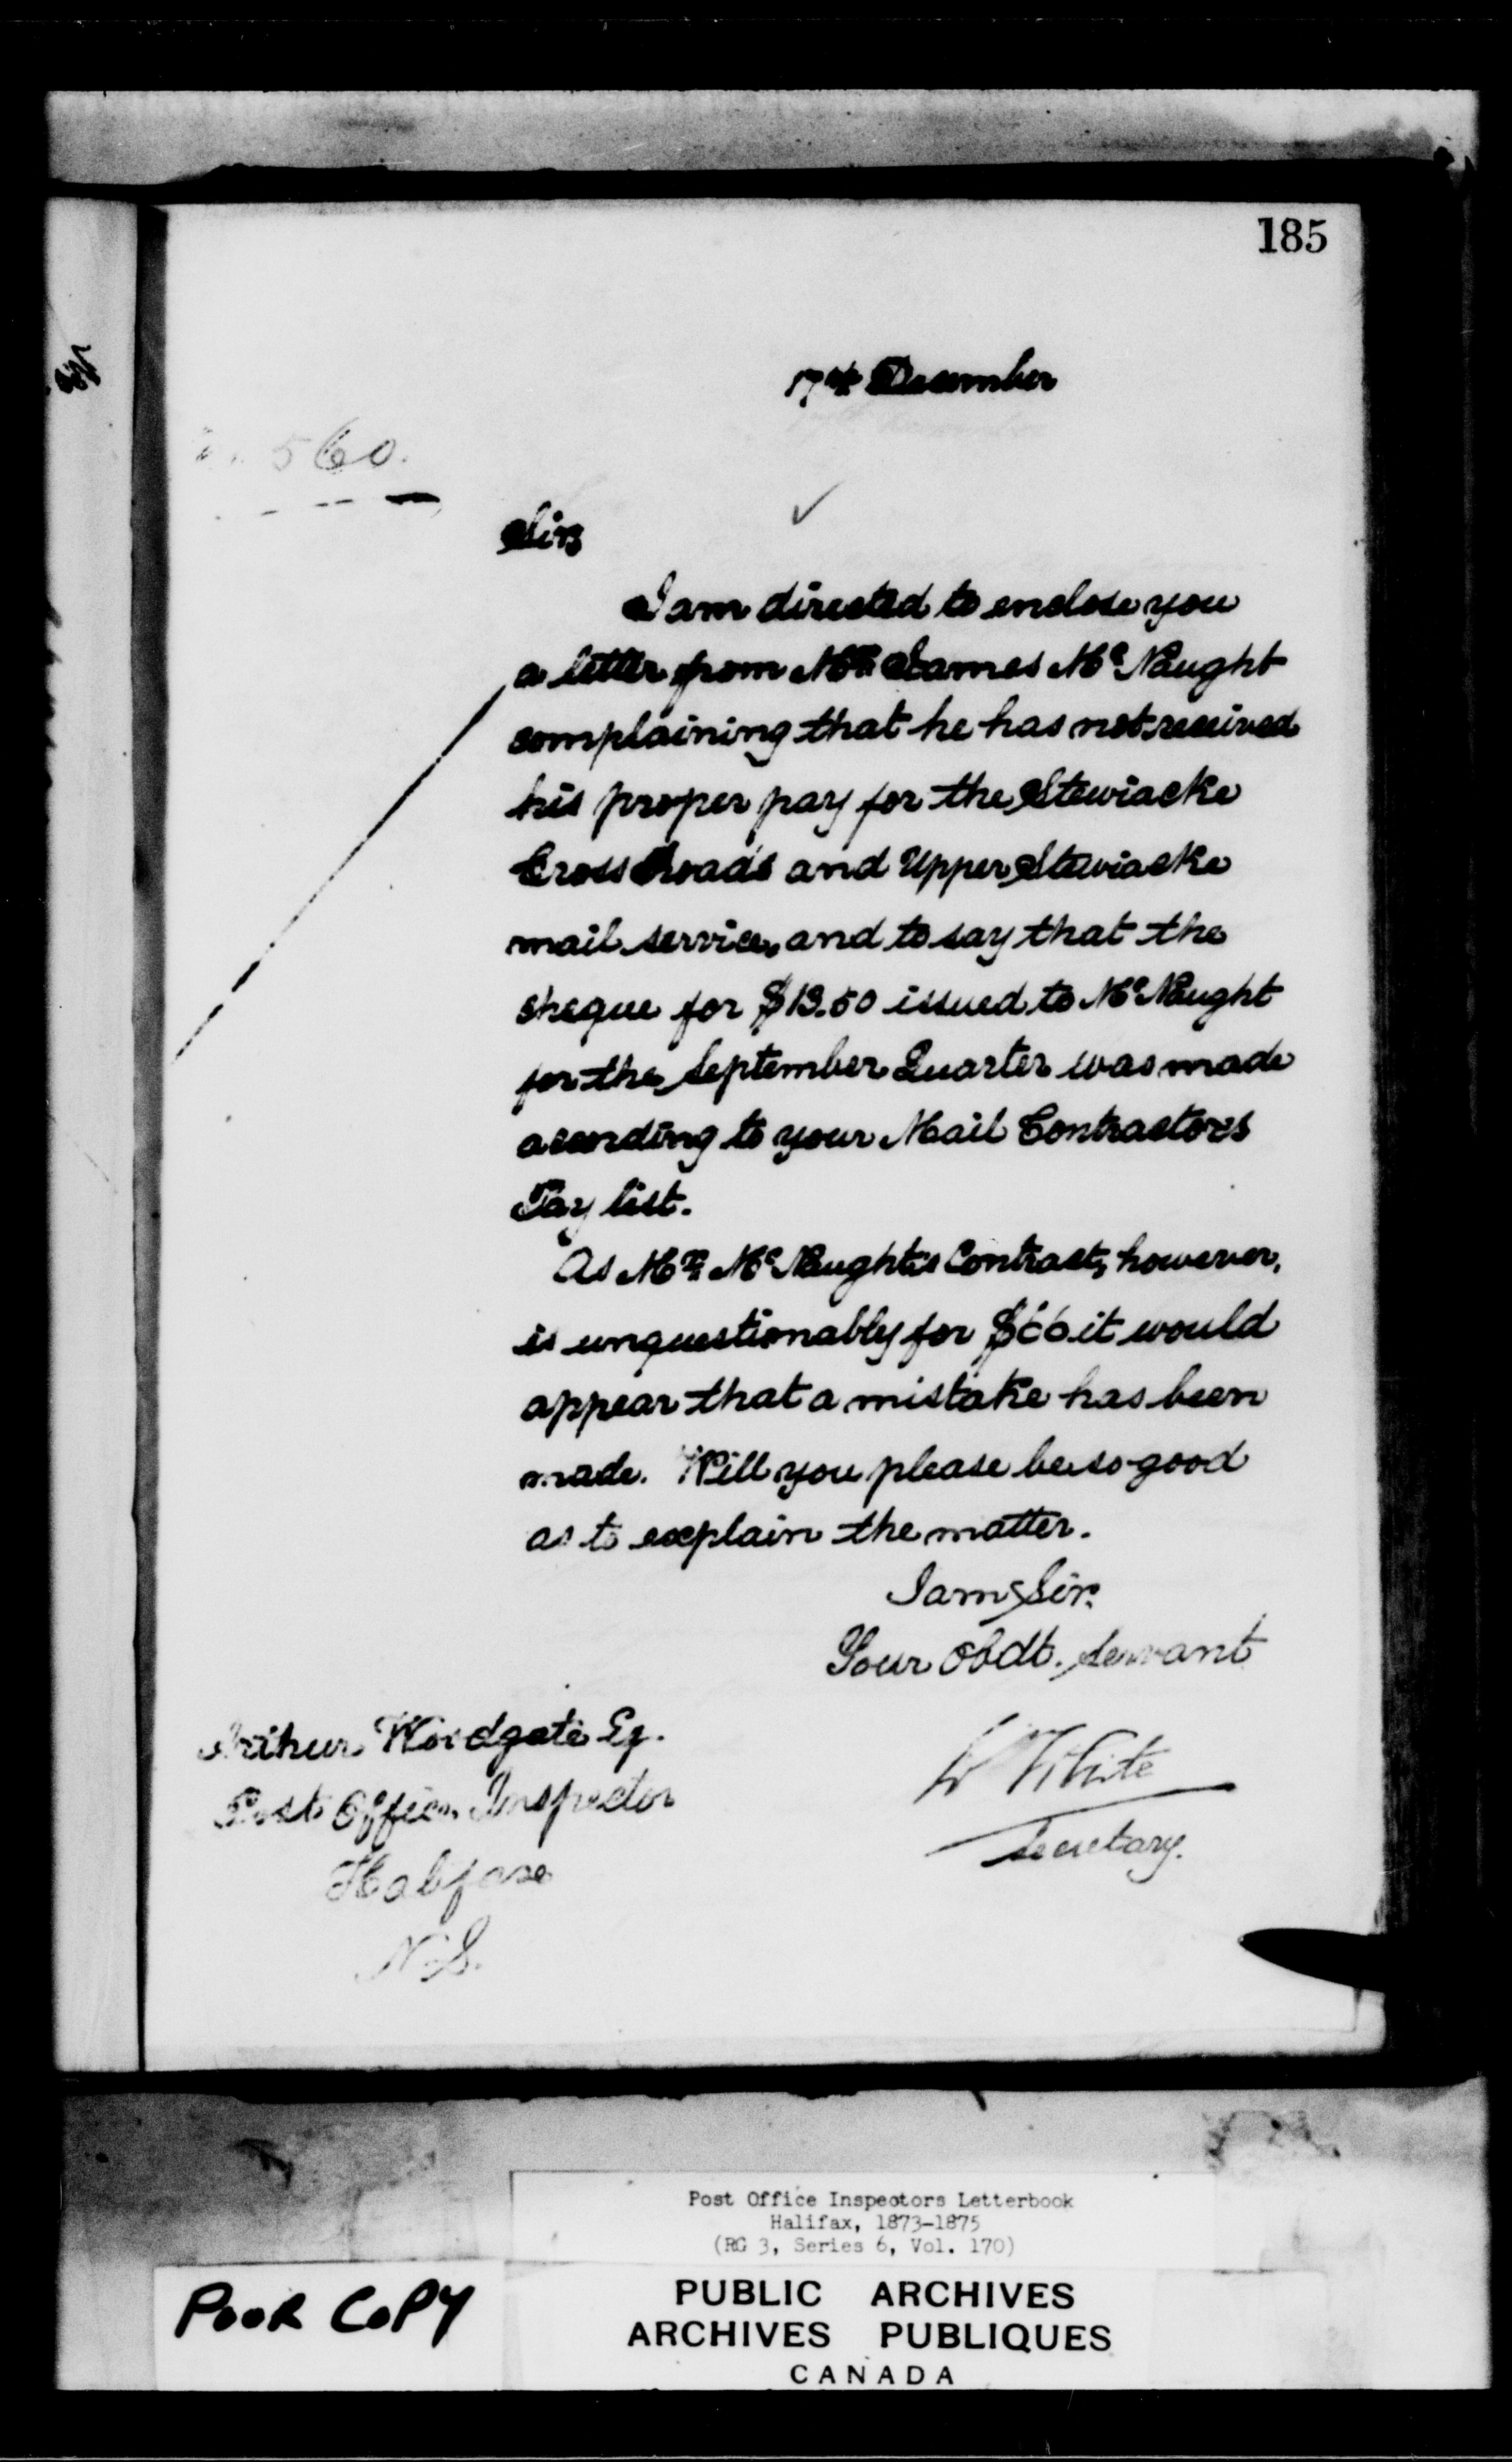 185
17th December
560.
Sir,
I am directed to enclose you
a letter from Mr. James McNaught
complaining that he has not received
his proper pay for the Stewiacke
Cross Roads and Upper Stewiacke
mail service, and to say that the
cheque for $13.50 issued to McNaught
for the September Quarter was made
according to your Mail Contractors
Pay list.
As Mr. McNaught's Contract, however,
is unquestionably for $66 it would
appear that a mistake has been
made. Will you please be so good
as to explain the matter.
I am, Sir,
Your Obdt. Servant
W White
Secretary.
Arthur Woodgate Eq.
Post Office Inspector
Halifax
N.S.
Post Office Inspectors Letterbook
Halifax, 1873-1875
(RG 3, Series 6, Vol. 170)
POOR COPY
PUBLIC ARCHIVES
ARCHIVES PUBLIQUES
CANADA